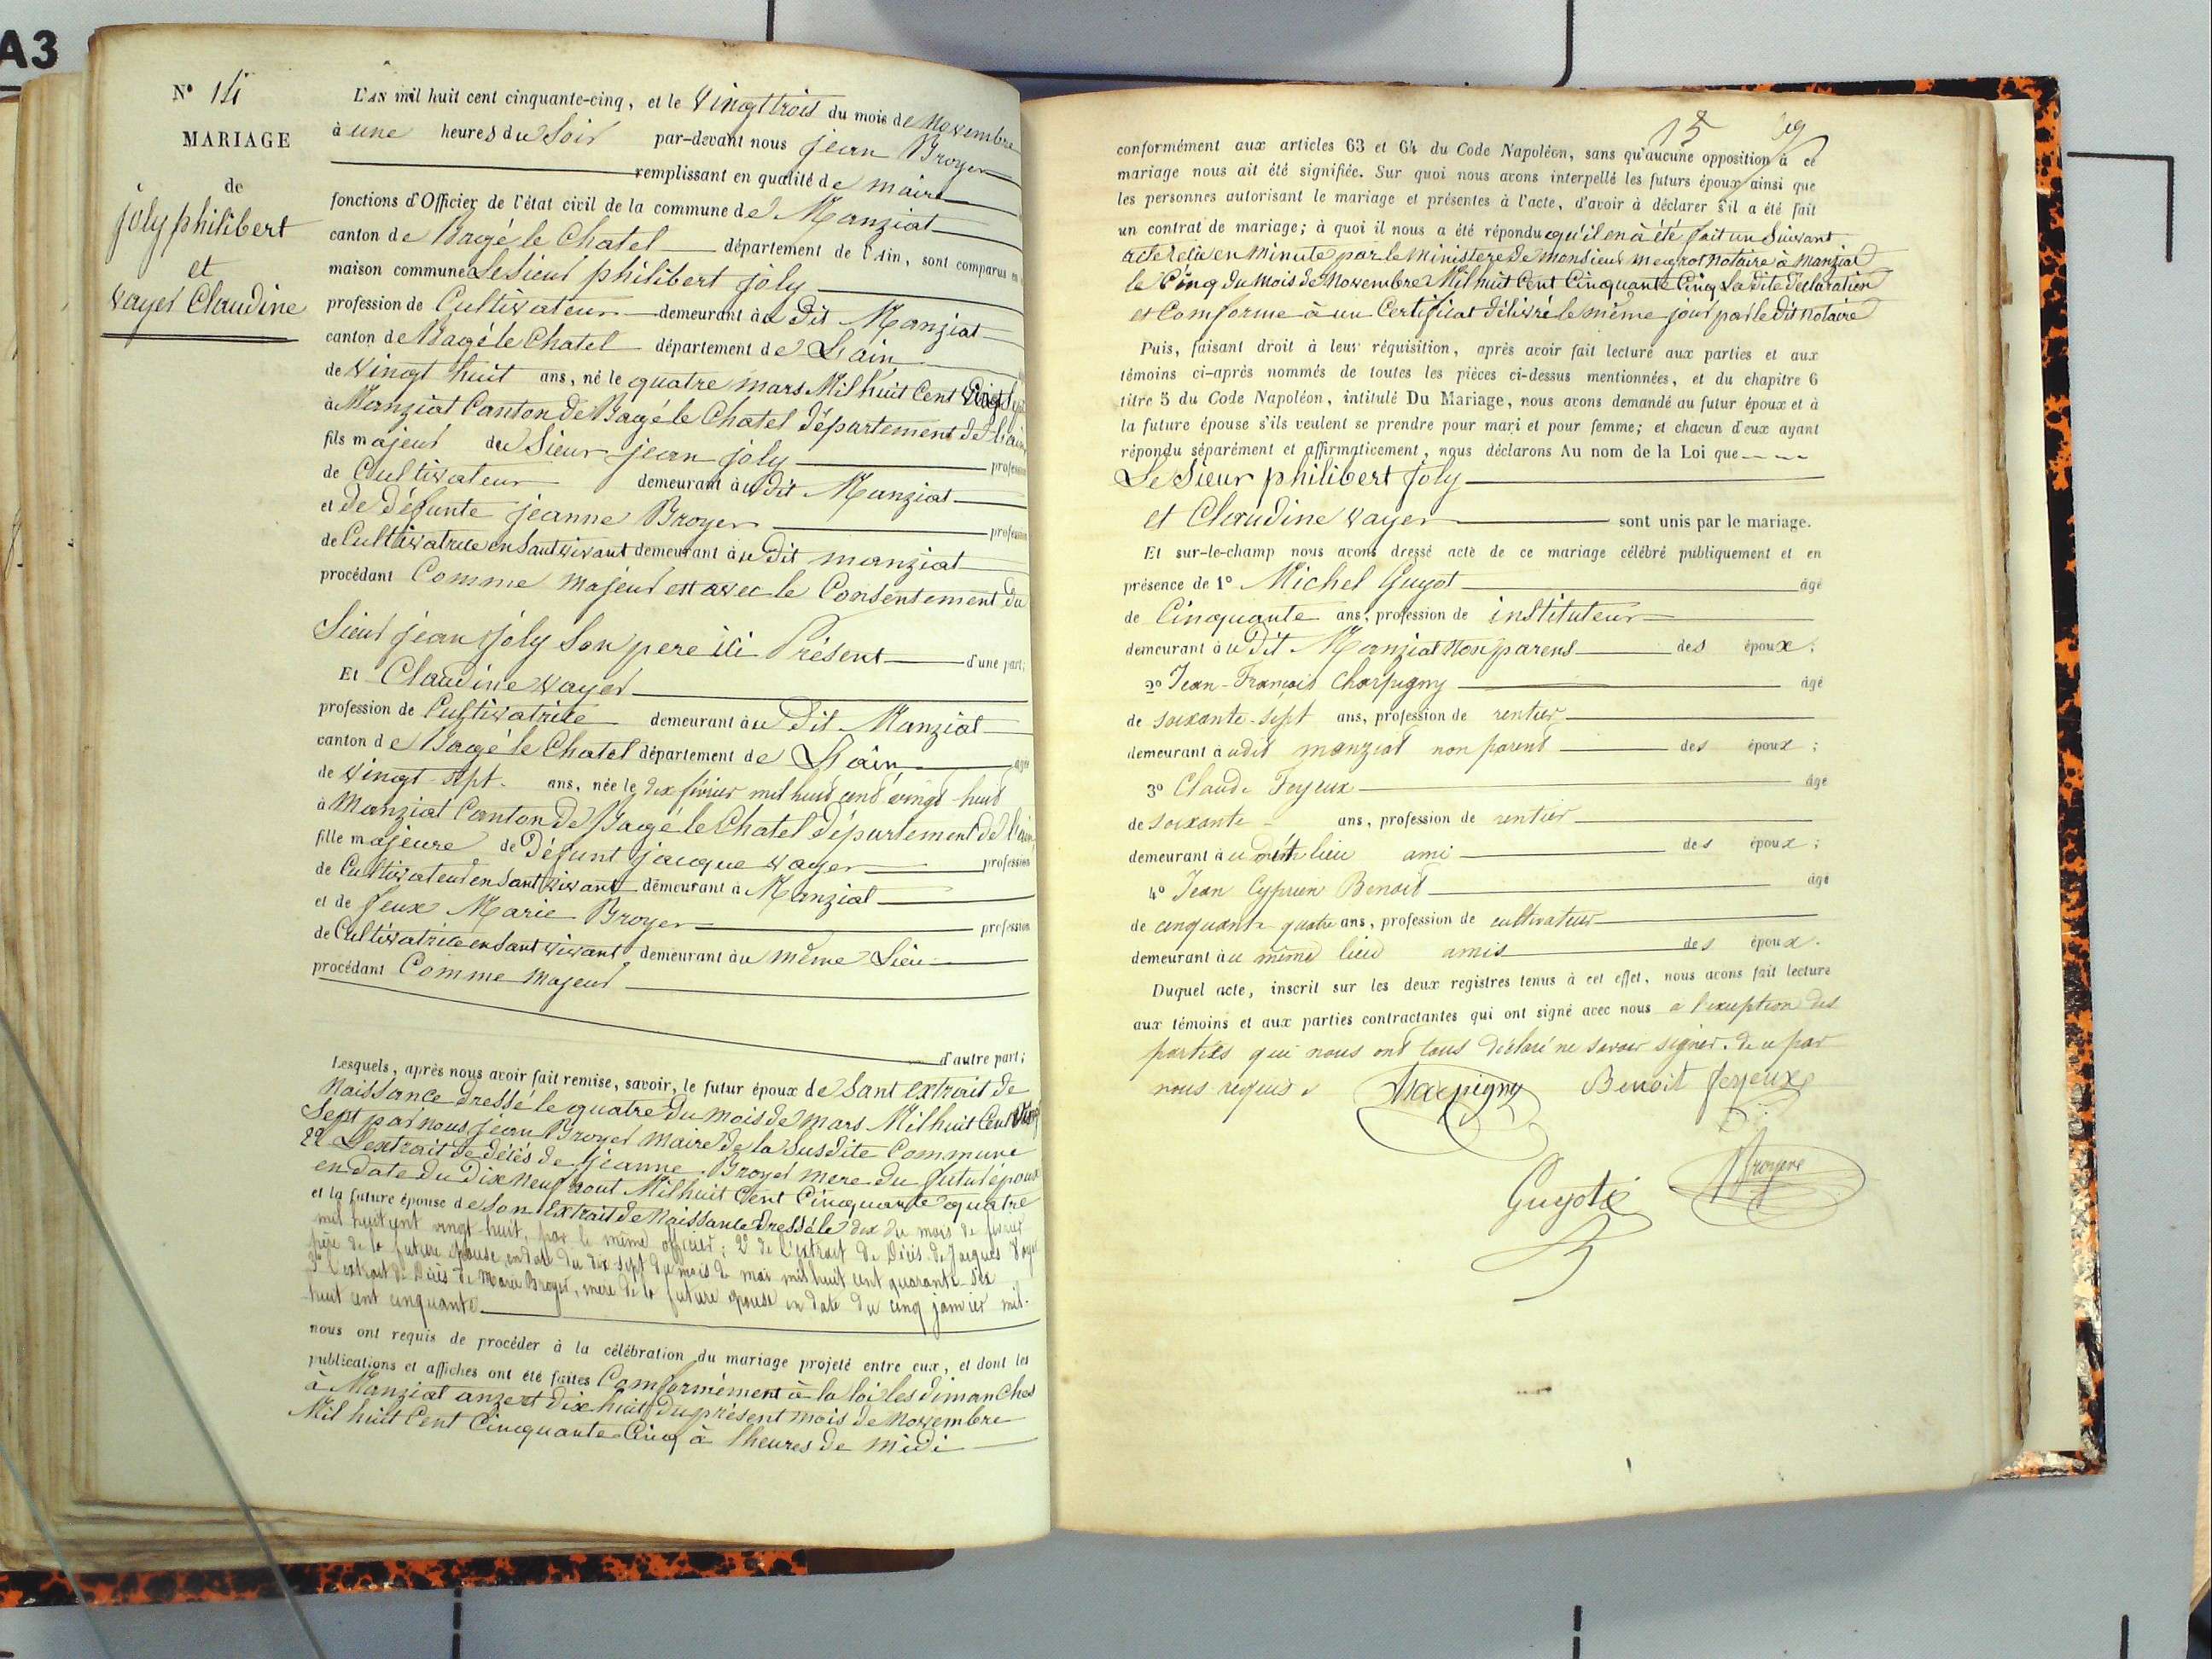 A3
N° 14
MARIAGE
de
joly philibert
et
vayer Claudine
L'AN mil huit cent cinquante-cinq, et le Vingt trois du mois de Novembre
à une heures du Soir par-devant nous jean Broyer
remplissant en qualité de maire
fonctions d'Officier de l'état civil de la commune de Manziat
canton de Bagé le Chatel département de l'Ain, sont comparus en
maison commune Le Sieur philibert joly
profession de Cultivateur demeurant au Dit Manziat
canton de Bagé le Chatel département de Lain
de Vingt huit ans, né le quatre mars Mil huit Cent Vingt Sept
à Manziat Canton de Bagé le Chatel Département de Lain
fils majeur du Sieur jean joly profession
de Cultivateur demeurant au Dit Manziat
et de défunte jeanne Broyer profession
de Cultivatrice en Sant vivant demeurant au Dit manziat
procédant Comme Majeur et avec le Consentement du
Sieur jean joly Son pere ici Présent d'une part;
Et Claudine vayer
profession de Cultivatrice demeurant au Dit Manziat
canton de Bagé le Chatel département de Lain âgée
de vingt-sept ans, née le dix février mil huit cent vingt-huit
à Manziat Canton de Bagé le Chatel Département de Lain
fille majeure de Défunt jacque vayer profession
de Cultivateur en Sant vivant demeurant à Manziat
et de feux Marie Broyer profession
de Cultivatrice en Sant vivant demeurant au même Lieu
procédant Comme Majeur
d'autre part;
Lesquels, après nous avoir fait remise, savoir, le futur époux de Sant extrait de
Naissance dressé le quatre du mois de mars Mil huit Cent Vingt
Sept par nous jean Broyer Maire de la Susdite Commune
2° L'extrait de décés de jeanne Broyer mere du futur époux
en date du Dix Neuf aout Mil huit Cent Cinquante quatre
et la future épouse de Son Extrait de Naissance Dressé le dix du mois de février
mil huit cent vingt-huit, par le même officier; 2° de l'extrait de Décès de Jacques Vayer
père de la future épouse, en date du dix-sept du mois de mai mil huit cent quarante-six
3° l'extrait de Décès de Marie Broyer, mère de la future épouse en date du cinq janvier mil-
huit cent cinquante
nous ont requis de procéder à la célébration du mariage projeté entre eux, et dont les
publications et affiches ont été faites Comformément à la loi les dimanches
à Manziat onze et dix huit du présent mois de Novembre
Mil huit Cent Cinquante Cinq à lheures de midi
15
conformément aux articles 63 et 64 du Code Napoléon, sans qu'aucune opposition à ce
mariage nous ait été signifiée. Sur quoi nous avons interpellé les futurs époux ainsi que
les personnes autorisant le mariage et présentes à l'acte, d'avoir à déclarer s'il a été fait
un contrat de mariage; à quoi il nous a été répondu qu'il en à été fait un Suivant
acte en Minute par le Ministere de Monsieur notaire à Manziat
le Cinq du Mois de Novembre Mil huit Cent Cinquante Cinq La dite déclaration
et Comforme à un Certificat délivré le même jour par le dit notaire
Puis, faisant droit à leur réquisition, après avoir fait lecture aux parties et aux
témoins ci-après nommés de toutes les pièces ci-dessus mentionnées, et du chapitre 6
titre 5 du Code Napoléon, intitulé Du Mariage, nous avons demandé au futur époux et à
la future épouse s'ils veulent se prendre pour mari et pour femme; et chacun d'eux ayant
répondu séparément et affirmativement, nous déclarons Au nom de la Loi que
Le Sieur philibert joly
et Claudine vayer sont unis par le mariage.
Et sur-le-champ nous avons dressé acte de ce mariage célébré publiquement et en
présence de 1° Michel Guyot âgé
de Cinquante ans, profession de instituteur
demeurant au Dit Manziat Non parens des époux;
2° Jean-François Charpigny âgé
de soixante-sept ans, profession de rentier
demeurant à udit manziat non parent des époux;
3° Claude Feyeux âgé
de soixante ans, profession de rentier
demeurant au dit lieu ami des époux;
4° Jean Cyprien Benoit âgé
de cinquante quatre ans, profession de cultivateur
demeurant au même lieu amis des époux.
Duquel acte, inscrit sur les deux registres tenus à cet effet, nous avons fait lecture
aux témoins et aux parties contractantes qui ont signé avec nous a l'exception des
parties qui nous ont tous déclaré ne savoir signer. de ce par
nous requis.
Charpigny Benoit feyeux
Guyot Broyer